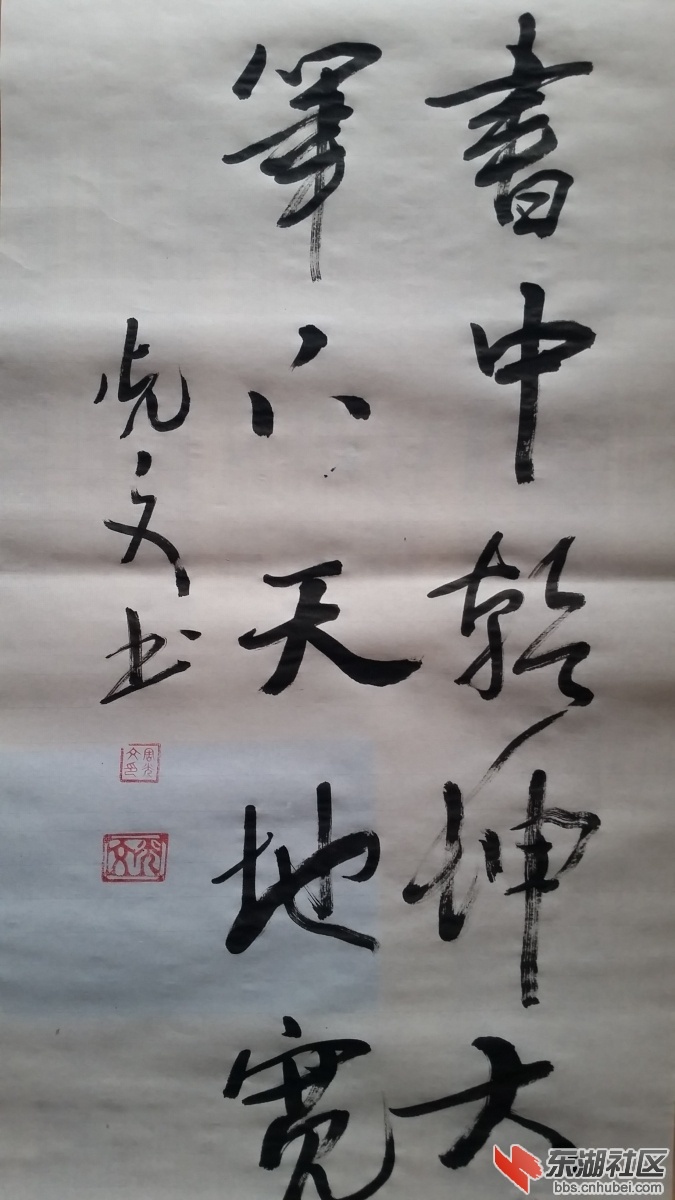 書中乾坤大
筆下天地寬
光文书
周光文印
光文
东湖社区
bbs.cnhubei.com